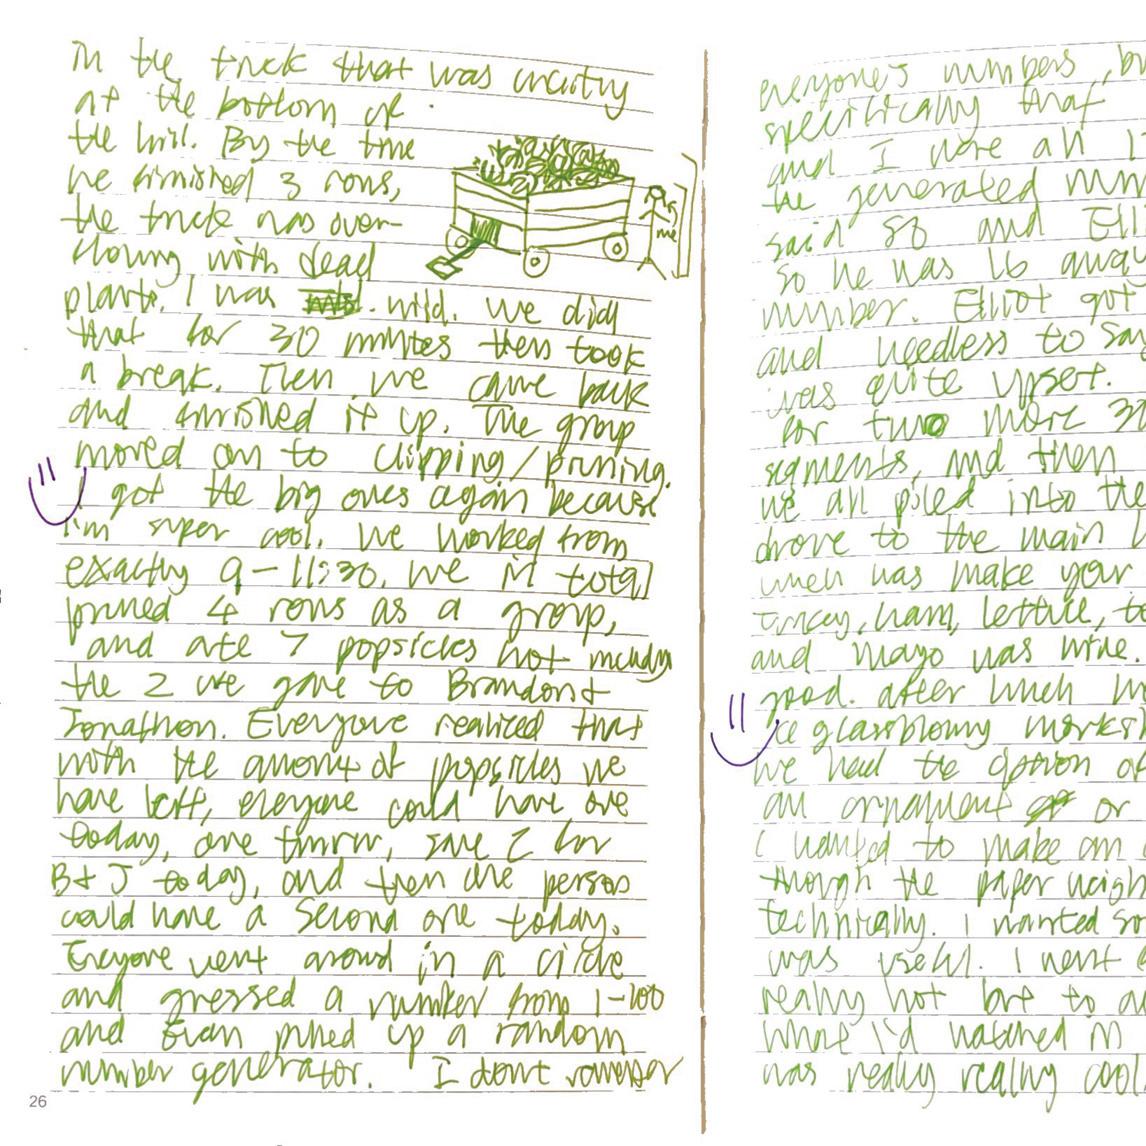 in the truck that was waiting
at the bottom of
the hill. By the time
we finished 3 rows,
the truck was over-
flowing with dead
plants. I was wild. We did
that for 30 minutes then took
a break. Then we came back
and finished it up. The group
moved on to clipping/pruning.
I got the big ones again because
i'm super cool. We worked from
exactly 9-11:30. We in total
pruned 4 rows as a group,
and ate 7 popsicles not including
the 2 we gave to Brandon+
Jonathon. Everyone realized that
with the amount of popsicles we
have left, everyone could have one
today, one tmrw, save 2 for
B+J today, and then one person
could have a second one today.
Everyone went around in a circle
and guessed a number from 1-100
and Evan pulled up a random
number generator. I don't remember
me
26
everyone's numbers, bu
specifically that
and I were all 1
the generated num
said 88 and Elli
so he was 16 away
number. Elliot got
and needless to say
was quite upset.
for two more 30
segments, and then
we all piled into the
drove to the main
lunch was make your
turkey, ham, lettuce, to
and mayo was mine.
good. after lunch
glassblowing works
We had the option of
an ornament or
I wanted to make an
though the paper weigh
technically. I wanted so
was useful. I went
really hot but to a
what I'd watched in
was really really cool